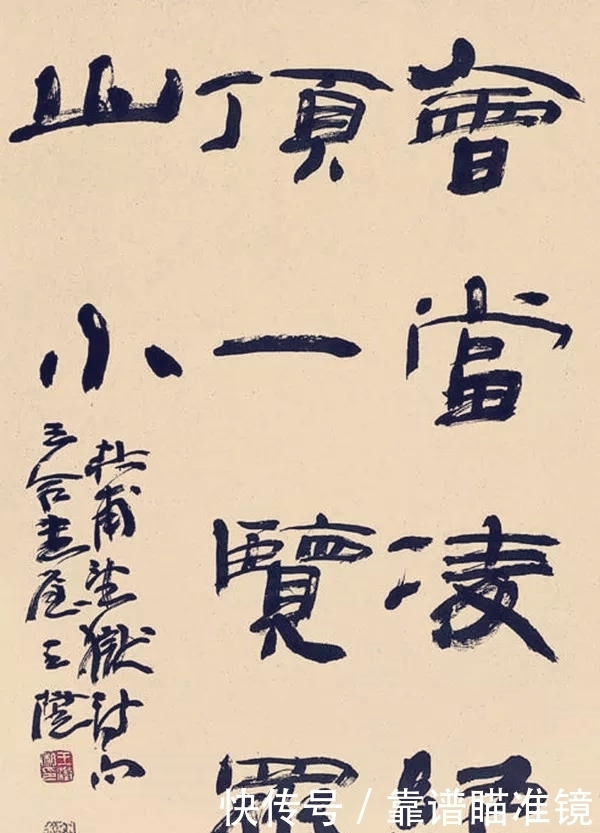 會當凌絕
頂一覽眾
山小
杜甫望嶽詩句
三合書屋王鏞
快传号／靠谱瞄准镜